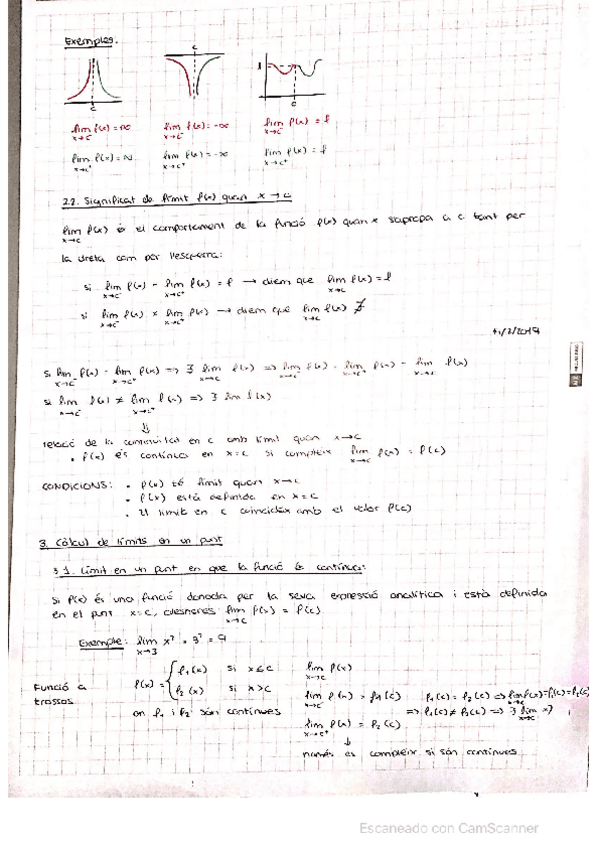 Exemples:
c
l
c
c
lim f(x) = ∞ lim f(x) = -∞ lim f(x) = l
x→c⁻ x→c⁻ x→c⁻
lim f(x) = ∞ lim f(x) = -∞ lim f(x) = l
x→c⁺ x→c⁺ x→c⁺
2.2. Significat de límit f(x) quan x → c
lim f(x) és el comportament de la funció f(x) quan x s'apropa a c tant per
x→c
la dreta com per l'esquerra:
si lim f(x) = lim f(x) = l → diem que lim f(x) = l
x→c⁻ x→c⁺ x→c
si lim f(x) ≠ lim f(x) → diem que lim f(x) ∄
x→c⁻ x→c⁺ x→c
si lim f(x) = lim f(x) => ∃ lim f(x) => lim f(x) = lim f(x) = lim f(x)
x→c⁻ x→c⁺ x→c x→c⁻ x→c⁺ x→c
si lim f(x) ≠ lim f(x) => ∄ lim f(x)
x→c⁻ x→c⁺
⇓
relació de la continuïtat en c amb límit quan x→c
• f(x) és contínua en x=c si compleix lim f(x) = f(c)
x→c
CONDICIONS: • f(x) té límit quan x→c
• f(x) està definida en x=c
• El límit en c coincideix amb el valor f(c)
3. Càlcul de límits en un punt
3.1. Límit en un punt en que la funció és contínua:
Si f(x) és una funció donada per la seva expressió analítica i està definida
en el punt x=c, aleshores lim f(x) = f(c)
x→c
Exemple: lim x² = 3² = 9
x→3
Funció a
trossos
f(x) = { f₁(x) si x≤c
f₂(x) si x>c
on f₁ i f₂ són contínues
lim f(x)
x→c
lim f(x) = f₁(c) f₁(c) = f₂(c) => lim f(x) = f₁(c) = f₂(c)
x→c⁻ => f₁(c) ≠ f₂(c) => ∄ lim
lim f(x) = f₂(c)
x→c⁺
↓
només es compleix si són contínues
Escaneado con CamScanner